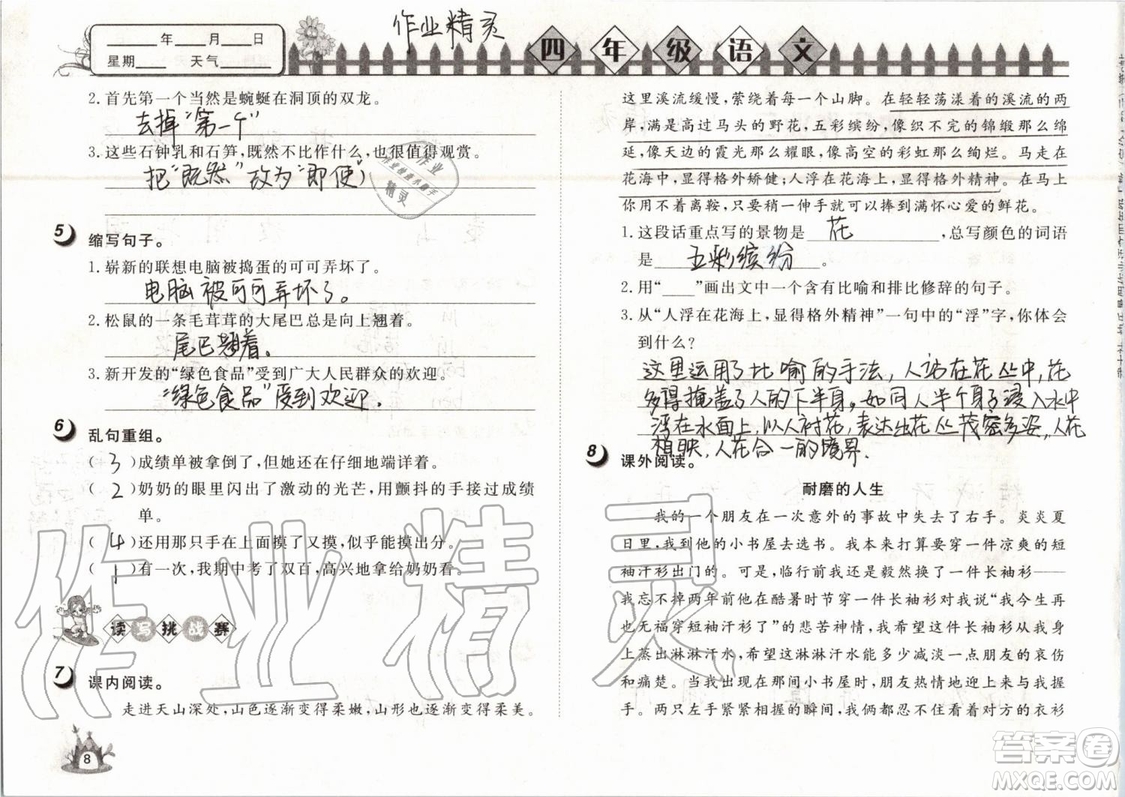 作业精灵
____年____月____日
星期____ 天气____
四年级语文
2.首先第一个当然是蜿蜒在洞顶的双龙。
去掉“第一个”
3.这些石钟乳和石笋，既然不比作什么，也很值得观赏。
把“既然”改为“即便”
5 缩写句子。
1.崭新的联想电脑被捣蛋的可可弄坏了。
电脑被可可弄坏了。
2.松鼠的一条毛茸茸的大尾巴总是向上翘着。
尾巴翘着。
3.新开发的“绿色食品”受到广大人民群众的欢迎。
“绿色食品”受到欢迎。
6 乱句重组。
（3）成绩单被拿倒了，但她还在仔细地端详着。
（2）奶奶的眼里闪出了激动的光芒，用颤抖的手接过成绩
单。
（4）还用那只手在上面摸了又摸，似乎能摸出分。
（1）有一次，我期中考了双百，高兴地拿给奶奶看。
读写挑战赛
7 课内阅读。
走进天山深处，山色逐渐变得柔嫩，山形也逐渐变得柔美。
8
这里溪流缓慢，萦绕着每一个山脚。在轻轻荡漾着的溪流的两
岸，满是高过马头的野花，五彩缤纷，像织不完的锦缎那么绵
延，像天边的霞光那么耀眼，像高空的彩虹那么绚烂。马走在
花海中，显得格外矫健；人浮在花海上，显得格外精神。在马上
你用不着离鞍，只要稍一伸手就可以捧到满怀心爱的鲜花。
1.这段话重点写的景物是 花 ，总写颜色的词语
是 五彩缤纷 。
2.用“____”画出文中一个含有比喻和排比修辞的句子。
3.从“人浮在花海上，显得格外精神”一句中的“浮”字，你体会
到什么？
这里运用了比喻的手法，人站在花丛中，花
多得掩盖了人的下半身，如同人半个身子浸入水中
浮在水面上，以人衬花，表达出花茂密多姿，人花
相映，人花合一的境界.
8 课外阅读。
耐磨的人生
我的一个朋友在一次意外的事故中失去了右手。炎炎夏
日里，我到他的小书屋去选书。我本来打算要穿一件凉爽的短
袖汗衫出门的。可是，临行前我还是毅然换了一件长袖衫——
我忘不掉两年前他在酷暑时节穿一件长袖衫对我说“我今生再
也无福穿短袖汗衫了”的悲苦神情，我希望这淋淋汗水能多少冲
去些他心中的苦痛，希望这淋淋汗水，能多少溶解些他的哀伤
和痛楚。当我出现在他的那间小书屋时，朋友热情地迎上来与我握
手。两只左手紧紧相握的瞬间，我俩都不由看着对方的衣衫
作业精灵
答案卷
MXQE.COM